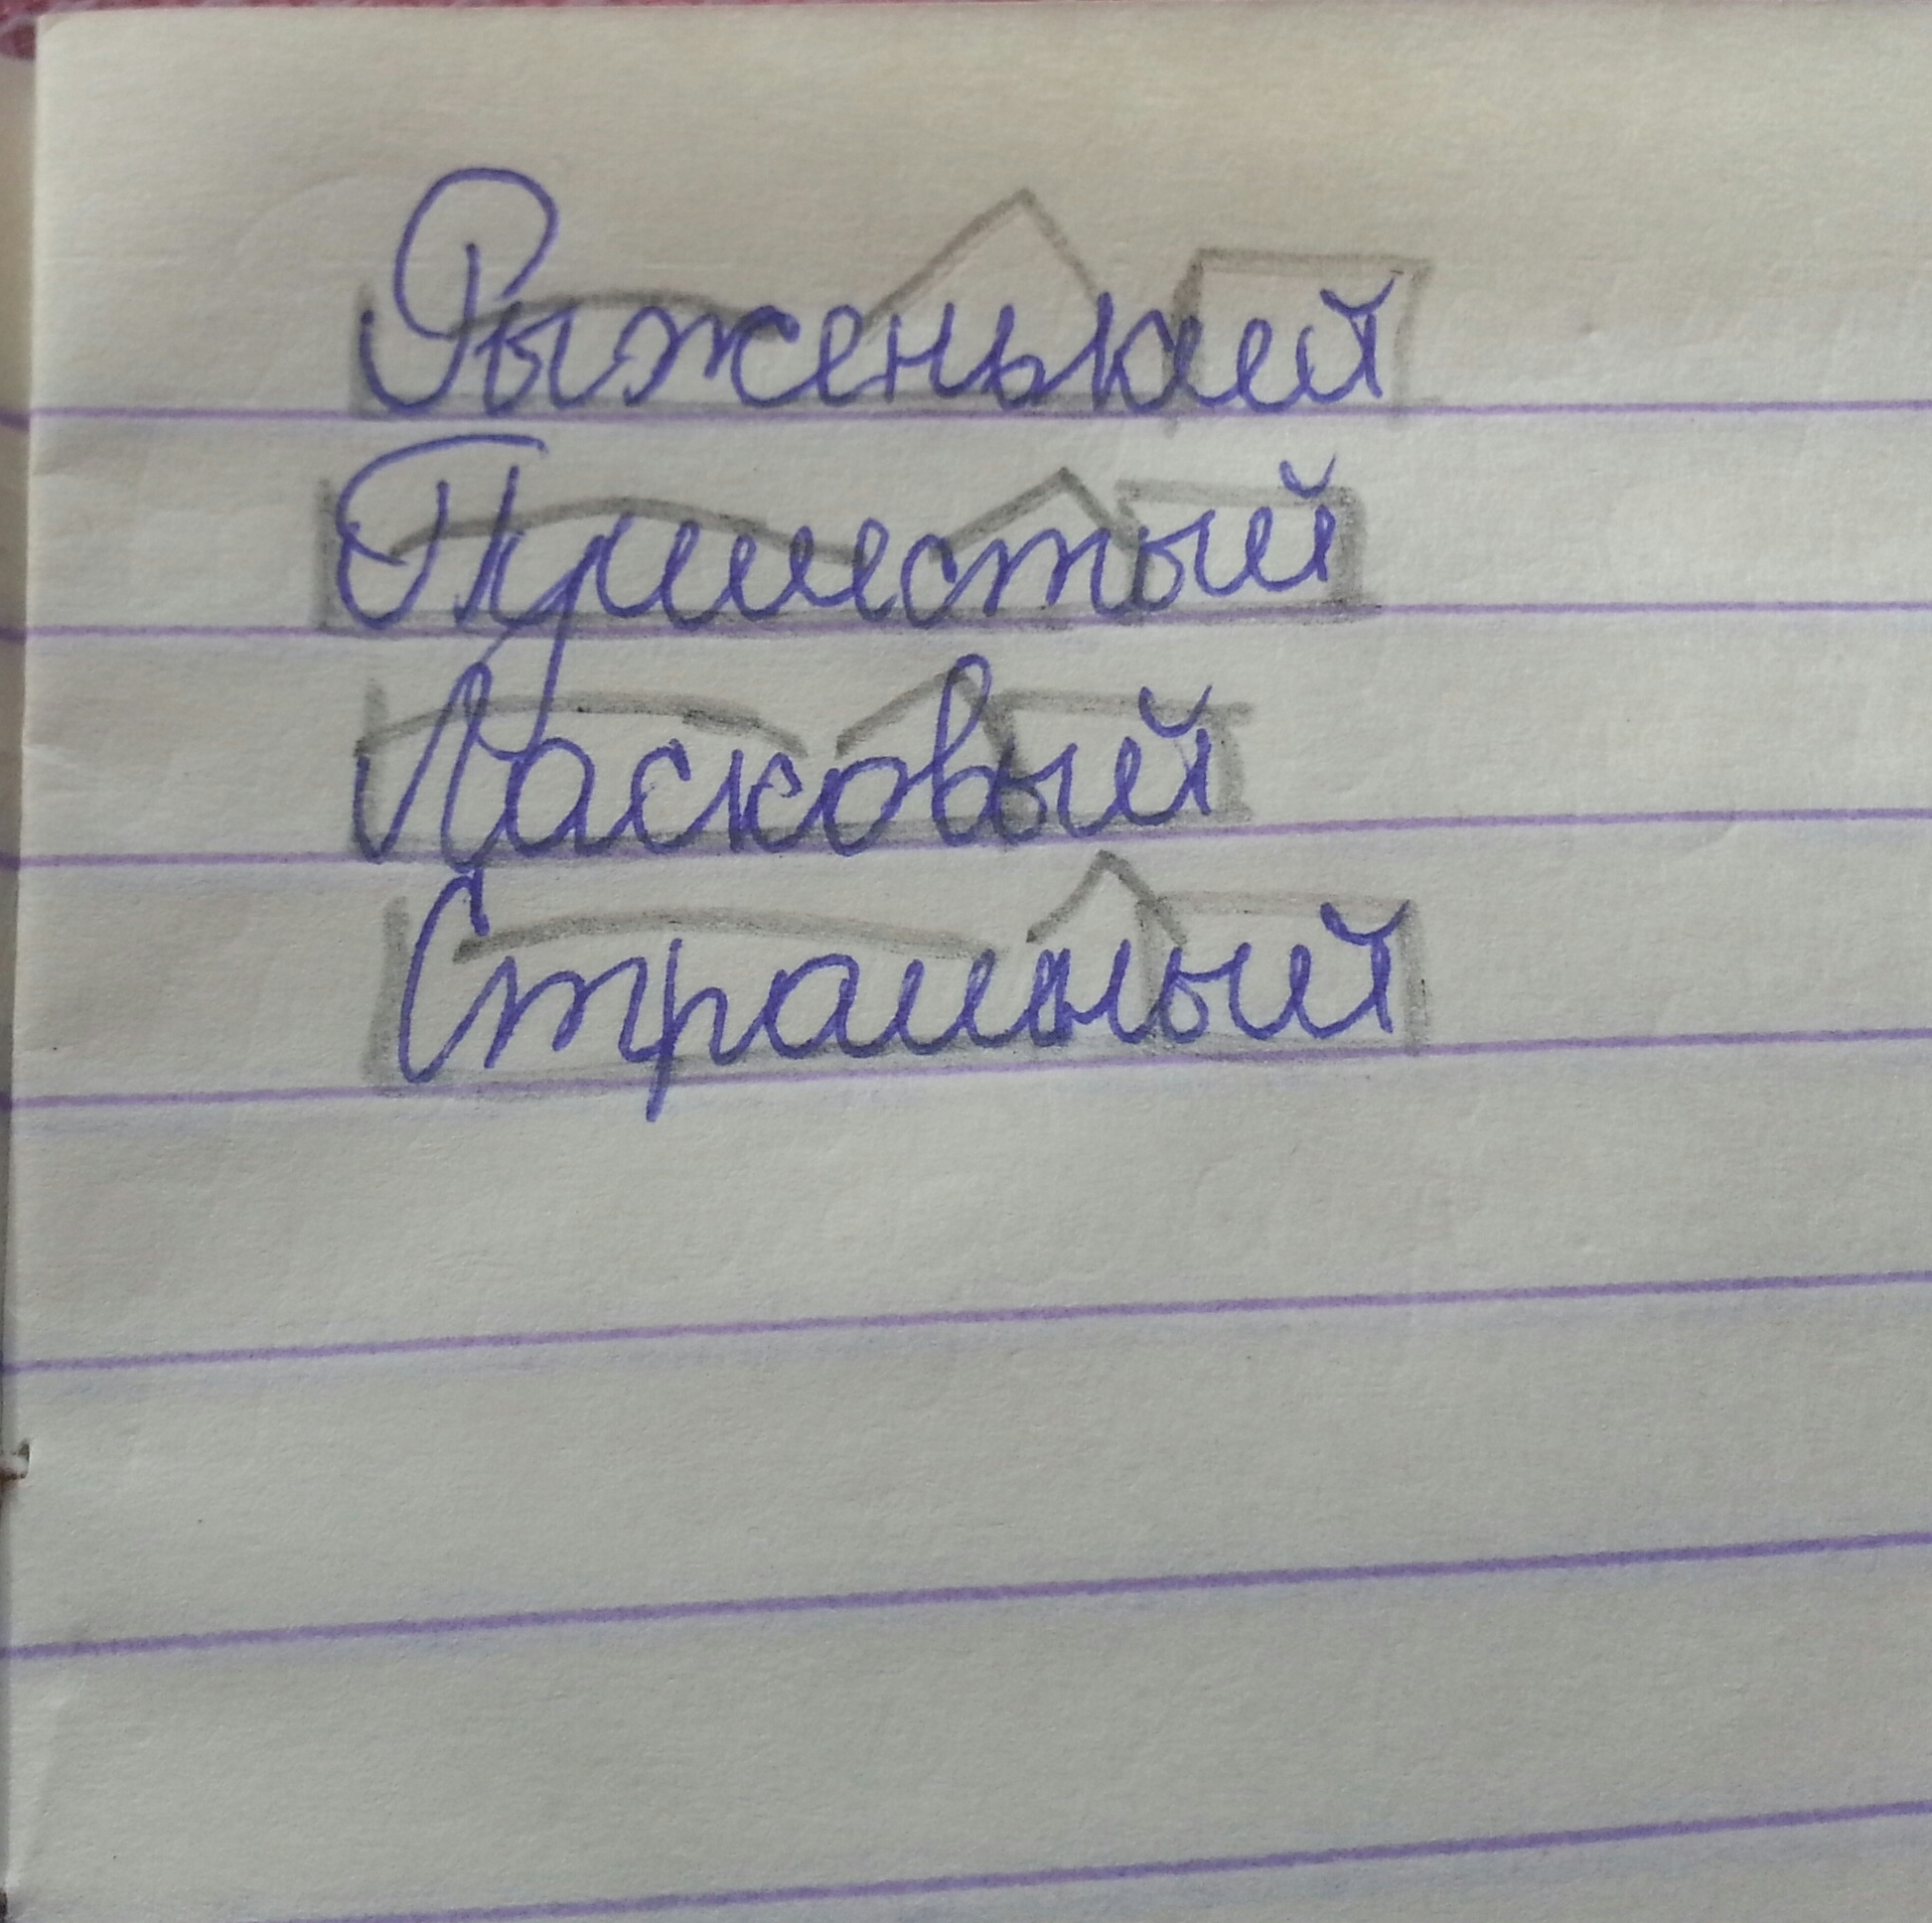 Рыженький
Пушистый
Ласковый
Страшный